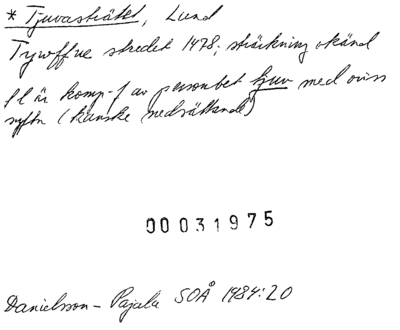 * Tjuvasträtet, Lund
Tywffue stredet 1478; sträckning okänd
f l är komp-f av personbet tjuv med oviss
syftn (kanske nedsättande)
00031975
Danielsson-Pajala SOÅ 1984:20